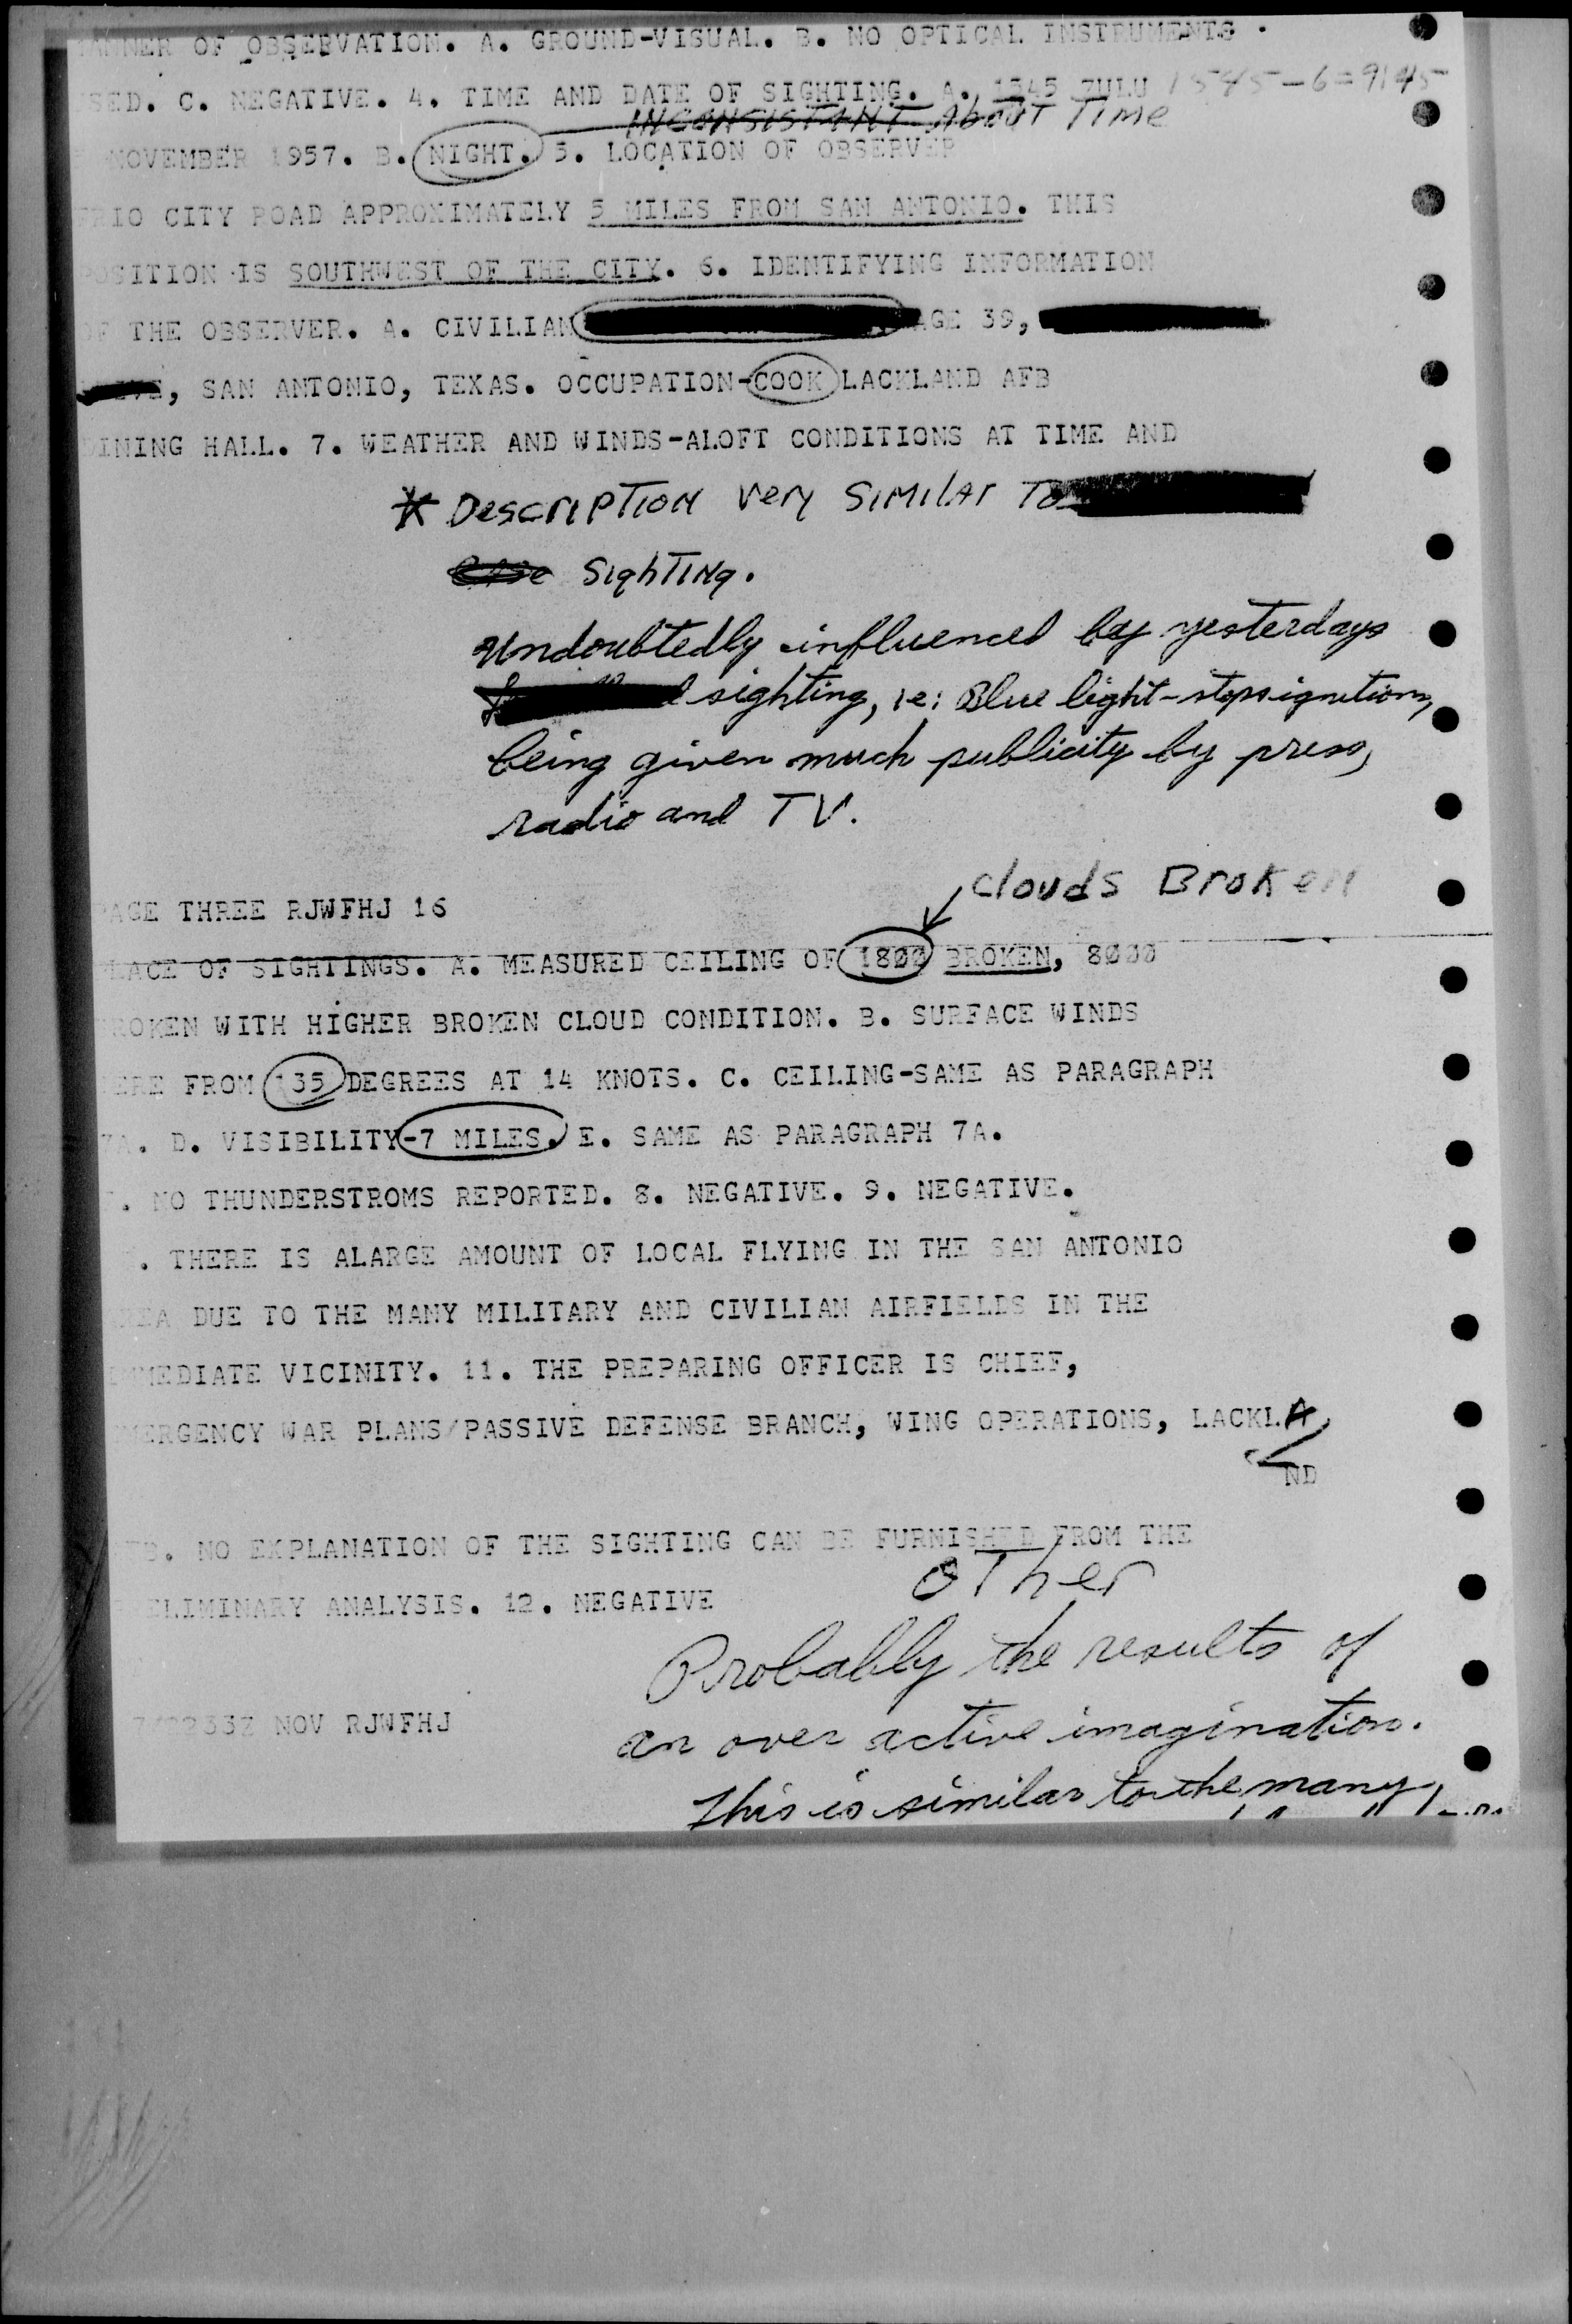 ANNER OF OBSERVATION. A. GROUND-VISUAL. B. NO OPTICAL INSTRUMENTS.
SED. C. NEGATIVE. 4. TIME AND DATE OF SIGHTING. A. 1545 ZULU 1545-6=9:45
INCONSISTANT About Time
NOVEMBER 1957. B. NIGHT. 5. LOCATION OF OBSERVER
RIO CITY ROAD APPROXIMATELY 5 MILES FROM SAN ANTONIO. THIS
POSITION IS SOUTHWEST OF THE CITY. 6. IDENTIFYING INFORMATION
OF THE OBSERVER. A. CIVILIAN AGE 39,
, SAN ANTONIO, TEXAS. OCCUPATION-COOK LACKLAND AFB
DINING HALL. 7. WEATHER AND WINDS-ALOFT CONDITIONS AT TIME AND
* Description very similar to
Case Sighting.
Undoubtedly influenced by yesterdays
sighting, ie: Blue light-stops ignition,
being given much publicity by press,
radio and TV.
clouds Broken
PAGE THREE RJWFHJ 16
PLACE OF SIGHTINGS. A. MEASURED CEILING OF 1800 BROKEN, 8000
ROKEN WITH HIGHER BROKEN CLOUD CONDITION. B. SURFACE WINDS
ERE FROM 135 DEGREES AT 14 KNOTS. C. CEILING-SAME AS PARAGRAPH
7A. D. VISIBILITY-7 MILES. E. SAME AS PARAGRAPH 7A.
. NO THUNDERSTROMS REPORTED. 8. NEGATIVE. 9. NEGATIVE.
. THERE IS ALARGE AMOUNT OF LOCAL FLYING IN THE SAN ANTONIO
REA DUE TO THE MANY MILITARY AND CIVILIAN AIRFIELDS IN THE
MMEDIATE VICINITY. 11. THE PREPARING OFFICER IS CHIEF,
MERGENCY WAR PLANS/PASSIVE DEFENSE BRANCH, WING OPERATIONS, LACKLA
ND
FB. NO EXPLANATION OF THE SIGHTING CAN BE FURNISHED FROM THE
Other
RELIMINARY ANALYSIS. 12. NEGATIVE
Probably the results of
an over active imagination.
This is similar to the many
NOV RJWFHJ